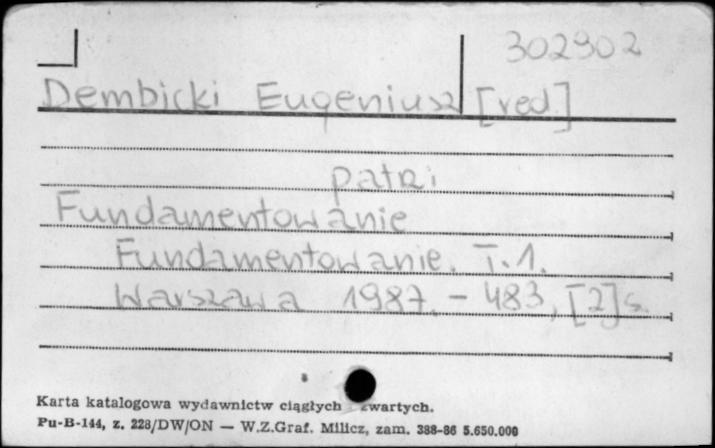 302902
Dembicki Eugeniusz [red]
patrz
Fundamentowanie
Fundamentowanie. T.1.
Warszawa 1987. - 483, [2]s.
Karta katalogowa wydawnictw ciągłych zwartych.
Pu-B-144, z. 228/DW/ON — W.Z.Graf. Milicz, zam. 388-86 5.650.000